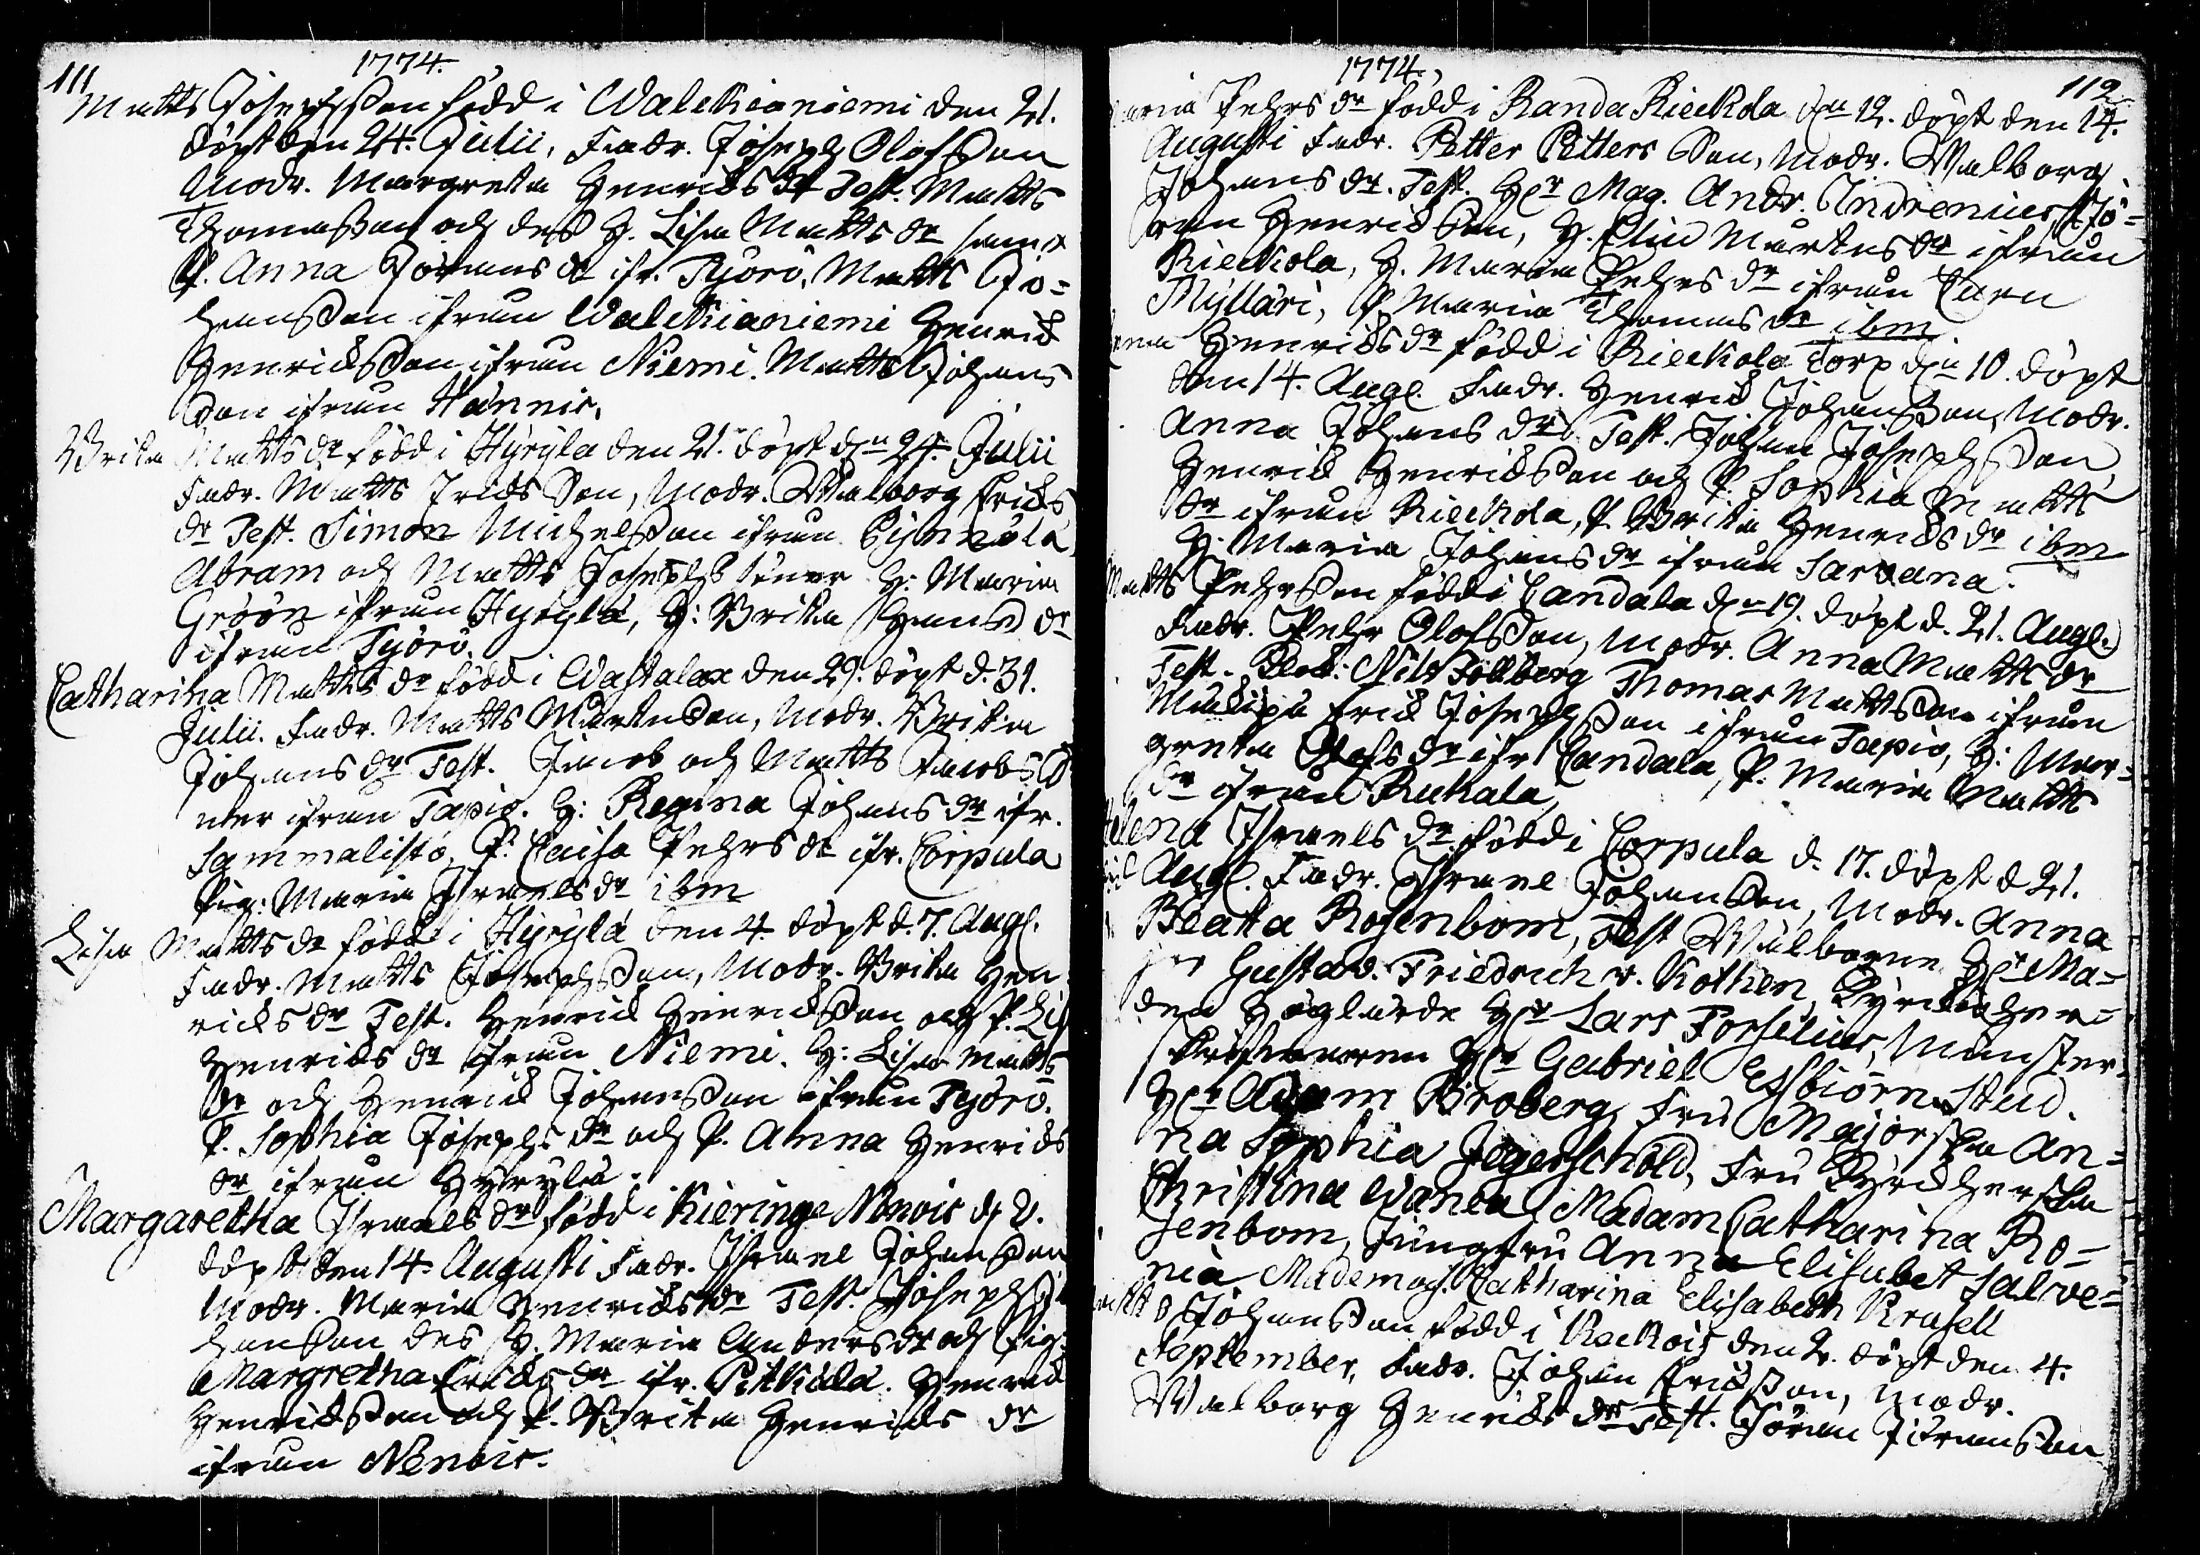 111
1774.
Matts Josephsson född i Walckianiemi den 21.
döpt den 24. Julii, Fadr. Joseph Olofsson
Modr. Margreta Henricsdr Test. Matts
Thomasson och des H. Lisa Matts dr samt
P. Anna Jörans dr ifr. Työrö, Matts Jo=
hansson ifrån Walckianiemi Henric
Henricsson ifrån Niemi. Matts Johans
son ifrån Hannis.
Brita Matts dr född i Hyrylä den 21. döpt dn 24. Julii
Fadr. Matts Erics Son, Modr. Walborg Erics
dr Test. Simon Michelsson ifrån
Abram och Matts Josephs Söner H: Maria
Gröön ifrån Hyrylä, H: Brita Hans dr
ifrån Työrö.
Catharina Matts dr född i Wastalax den 29. döpt d. 31.
Julii. Fadr. Matts Mårtensson, Modr. Brita
Johans dr Test. Jacob och Matts Jacobs Sö
ner ifrån Tapio. H: Regina Johans dr ifr.
Sammalisto, P. Caisa Pehrs dr ifr. Corpula
Pig: Maria Israels dr ibm
Lisa Matts dr född i Hyrylä den 4. döpt d. 7. Aug.
Fadr. Matts Josephsson, Modr. Brita Hen
rics dr Test. Henric Henricsson och P. Lis
Henrics dr ifrån Niemi. H: Lisa Matts
dr och Henric Johansson ifrån Työrö.
P. Sophia Josephs dr och P. Anna Henrics
dr ifrån Hyrylä.
Margaretha Israels dr född i Kieringe Nenois d. 2.
döpt den 14. Augusti Fadr. Israel Johansson
Modr. Maria Henrics dr Test. Joseph Jo
hansson des H. Maria Anders dr och Pig:
Margretha Erics dr ifr. Pitkälä. Henric
Henricsson och P. Brita Henrics dr
ifrån Nenois.
1774.
112
Maria Pehrs dr född i Randa Rieckola dn 12. döpt den 14.
Augusti Fadr. Petter Petters Son, Modr. Walborg
Johans dr. Test. Hr Mag. Andr. Indrenius, Jö=
ran Henricsson, H. Elin Mårtens dr ifrån
Rieckola, H. Maria Pehrs dr ifrån
Myllari, P. Maria Thomas dr ibm
Henrics dr född i Rieckola Torp dn 10. döpt
den 14. Aug. Fadr. Henric Johansson, Modr.
Anna Johans dr. Test. Johan Josephsson
Henric Henricsson och P. Sophia Matts
dr ifrån Rieckola, P. Brita Henrics dr ibm
H. Maria Johans dr ifrån Sarvana.
Matts Pehrsson född i Candala dn 19. döpt d. 21. Aug.
Fadr. Pehr Olofsson, Modr. Anna Matts dr
Test. Nils Tollberg Thomas Mattsson ifrån
Eric Josephsson ifrån Tapio, H: Mar=
greta Olofs dr ifr. Candala, P. Maria Matts
dr ifrån Ruhala,
Helena Israels dr född i Corpula d. 17. döpt d 21.
Aug. Fadr. Israel Johansson, Modr. Anna
Beata Rosenbom, Test Wälborne Hr Ma=
jor Gustav. Friedrich v. Kothen, Kyrckioher=
den Höglärde Hr Lars Forselius, Mönster=
skrifvaren Hr Gabriel Esbiörn Stud.
Hr Adam Broberg, Fru Majorskan An=
na Sophia Jegerschöld, Fru Kyrckherskan
Christina Wanea, Madam Catharina Ro=
senbom, Jungfru Anna Elisabet Salve=
nia Mademois. Catharina Elisabeth Krusell
Johansson född i Reckois den 2. döpt den 4.
September, Fadr. Johan Ericsson, Modr.
Walborg Henrics dr Test. Jöran Göransson